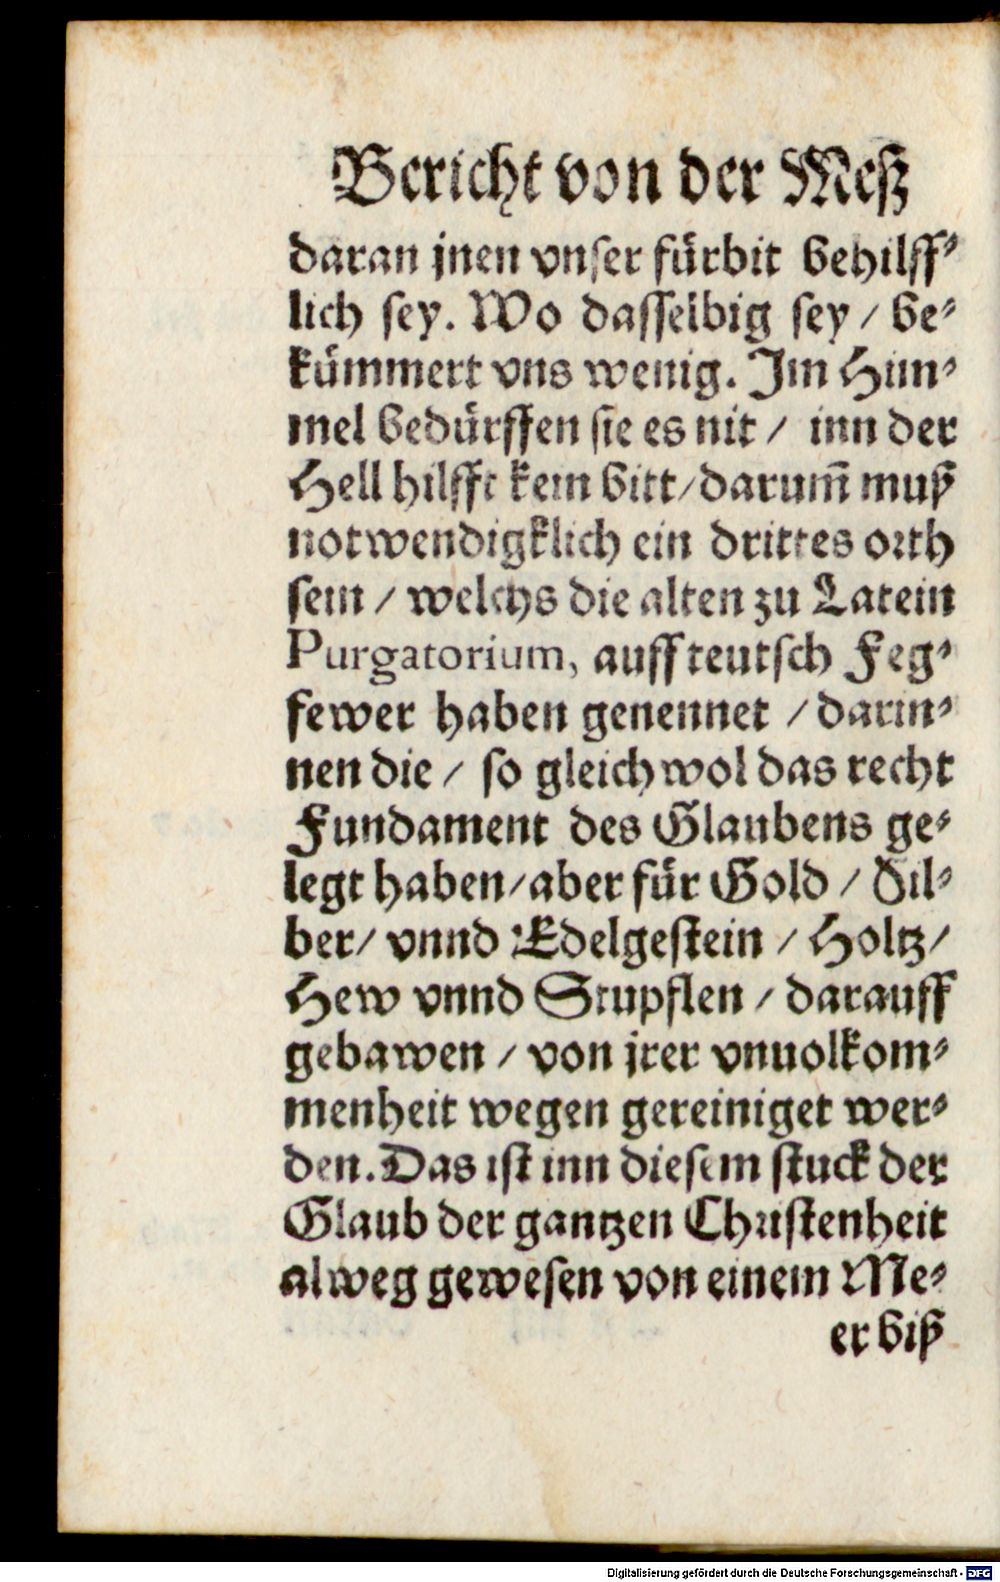 Bericht von der Meß
daran jnen vnser fürbit behilff⸗
lich sey. Wo dasselbig sey / be⸗
kümmert vns wenig. Im Him⸗
mel bedürffen sie es nit / inn der
Hell hilfft kein bitt/darum̃ muß
notwendigklich ein drittes orth
sein / welchs die alten zu Latein
Purgatorium, auff teutsch Feg⸗
fewer haben genennet / darin⸗
nen die / so gleich wol das recht
Fundament des Glaubens ge⸗
legt haben/aber für Gold / Sil⸗
ber/ vnnd Edelgestein / Holtz/
Hew vnnd Stupflen / darauff
gebawen / von jrer vnuolkom⸗
menheit wegen gereiniget wer⸗
den. Das ist inn diesem stuck der
Glaub der gantzen Christenheit
alweg gewesen von einem Me⸗
er biß
Digitalisierung gefördert durch die Deutsche Forschungsgemeinschaft - DFG